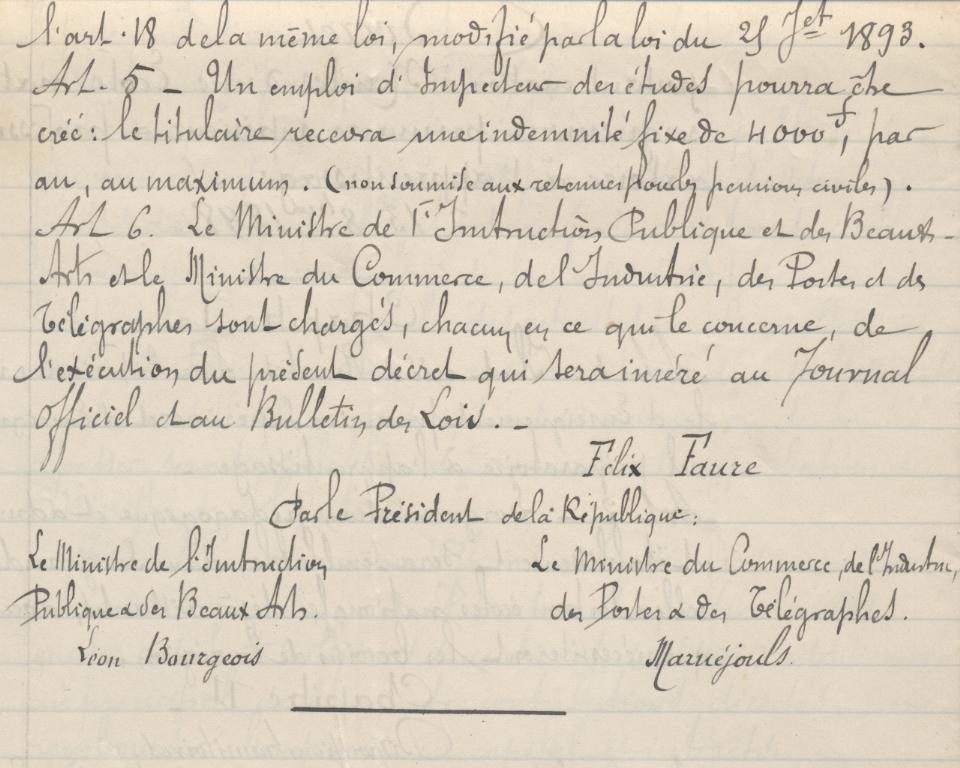 l'art. 18 de la même loi, modifié par la loi du 25 Jet 1893.
Art. 5 _ Un emploi d'Inspecteur des études pourra être
créé: le titulaire recevra une indemnité fixe de 4000f, par
an, au maximum. (non soumise aux retenues pour les pensions civiles).
Art 6. Le Ministre de l'Instruction Publique et des Beaux-
Arts et le Ministre du Commerce, de l'Industrie, des Postes et des
Télégraphes sont chargés, chacun en ce qui le concerne, de
l'exécution du présent décret qui sera inséré au Journal
Officiel et au Bulletin des Lois. _
Félix Faure
Par le Président de la République:
Le Ministre de l'Instruction
Publique & des Beaux Arts.
Léon Bourgeois
Le Ministre du Commerce, de l'Industrie,
des Postes & des Télégraphes.
Maruéjouls.